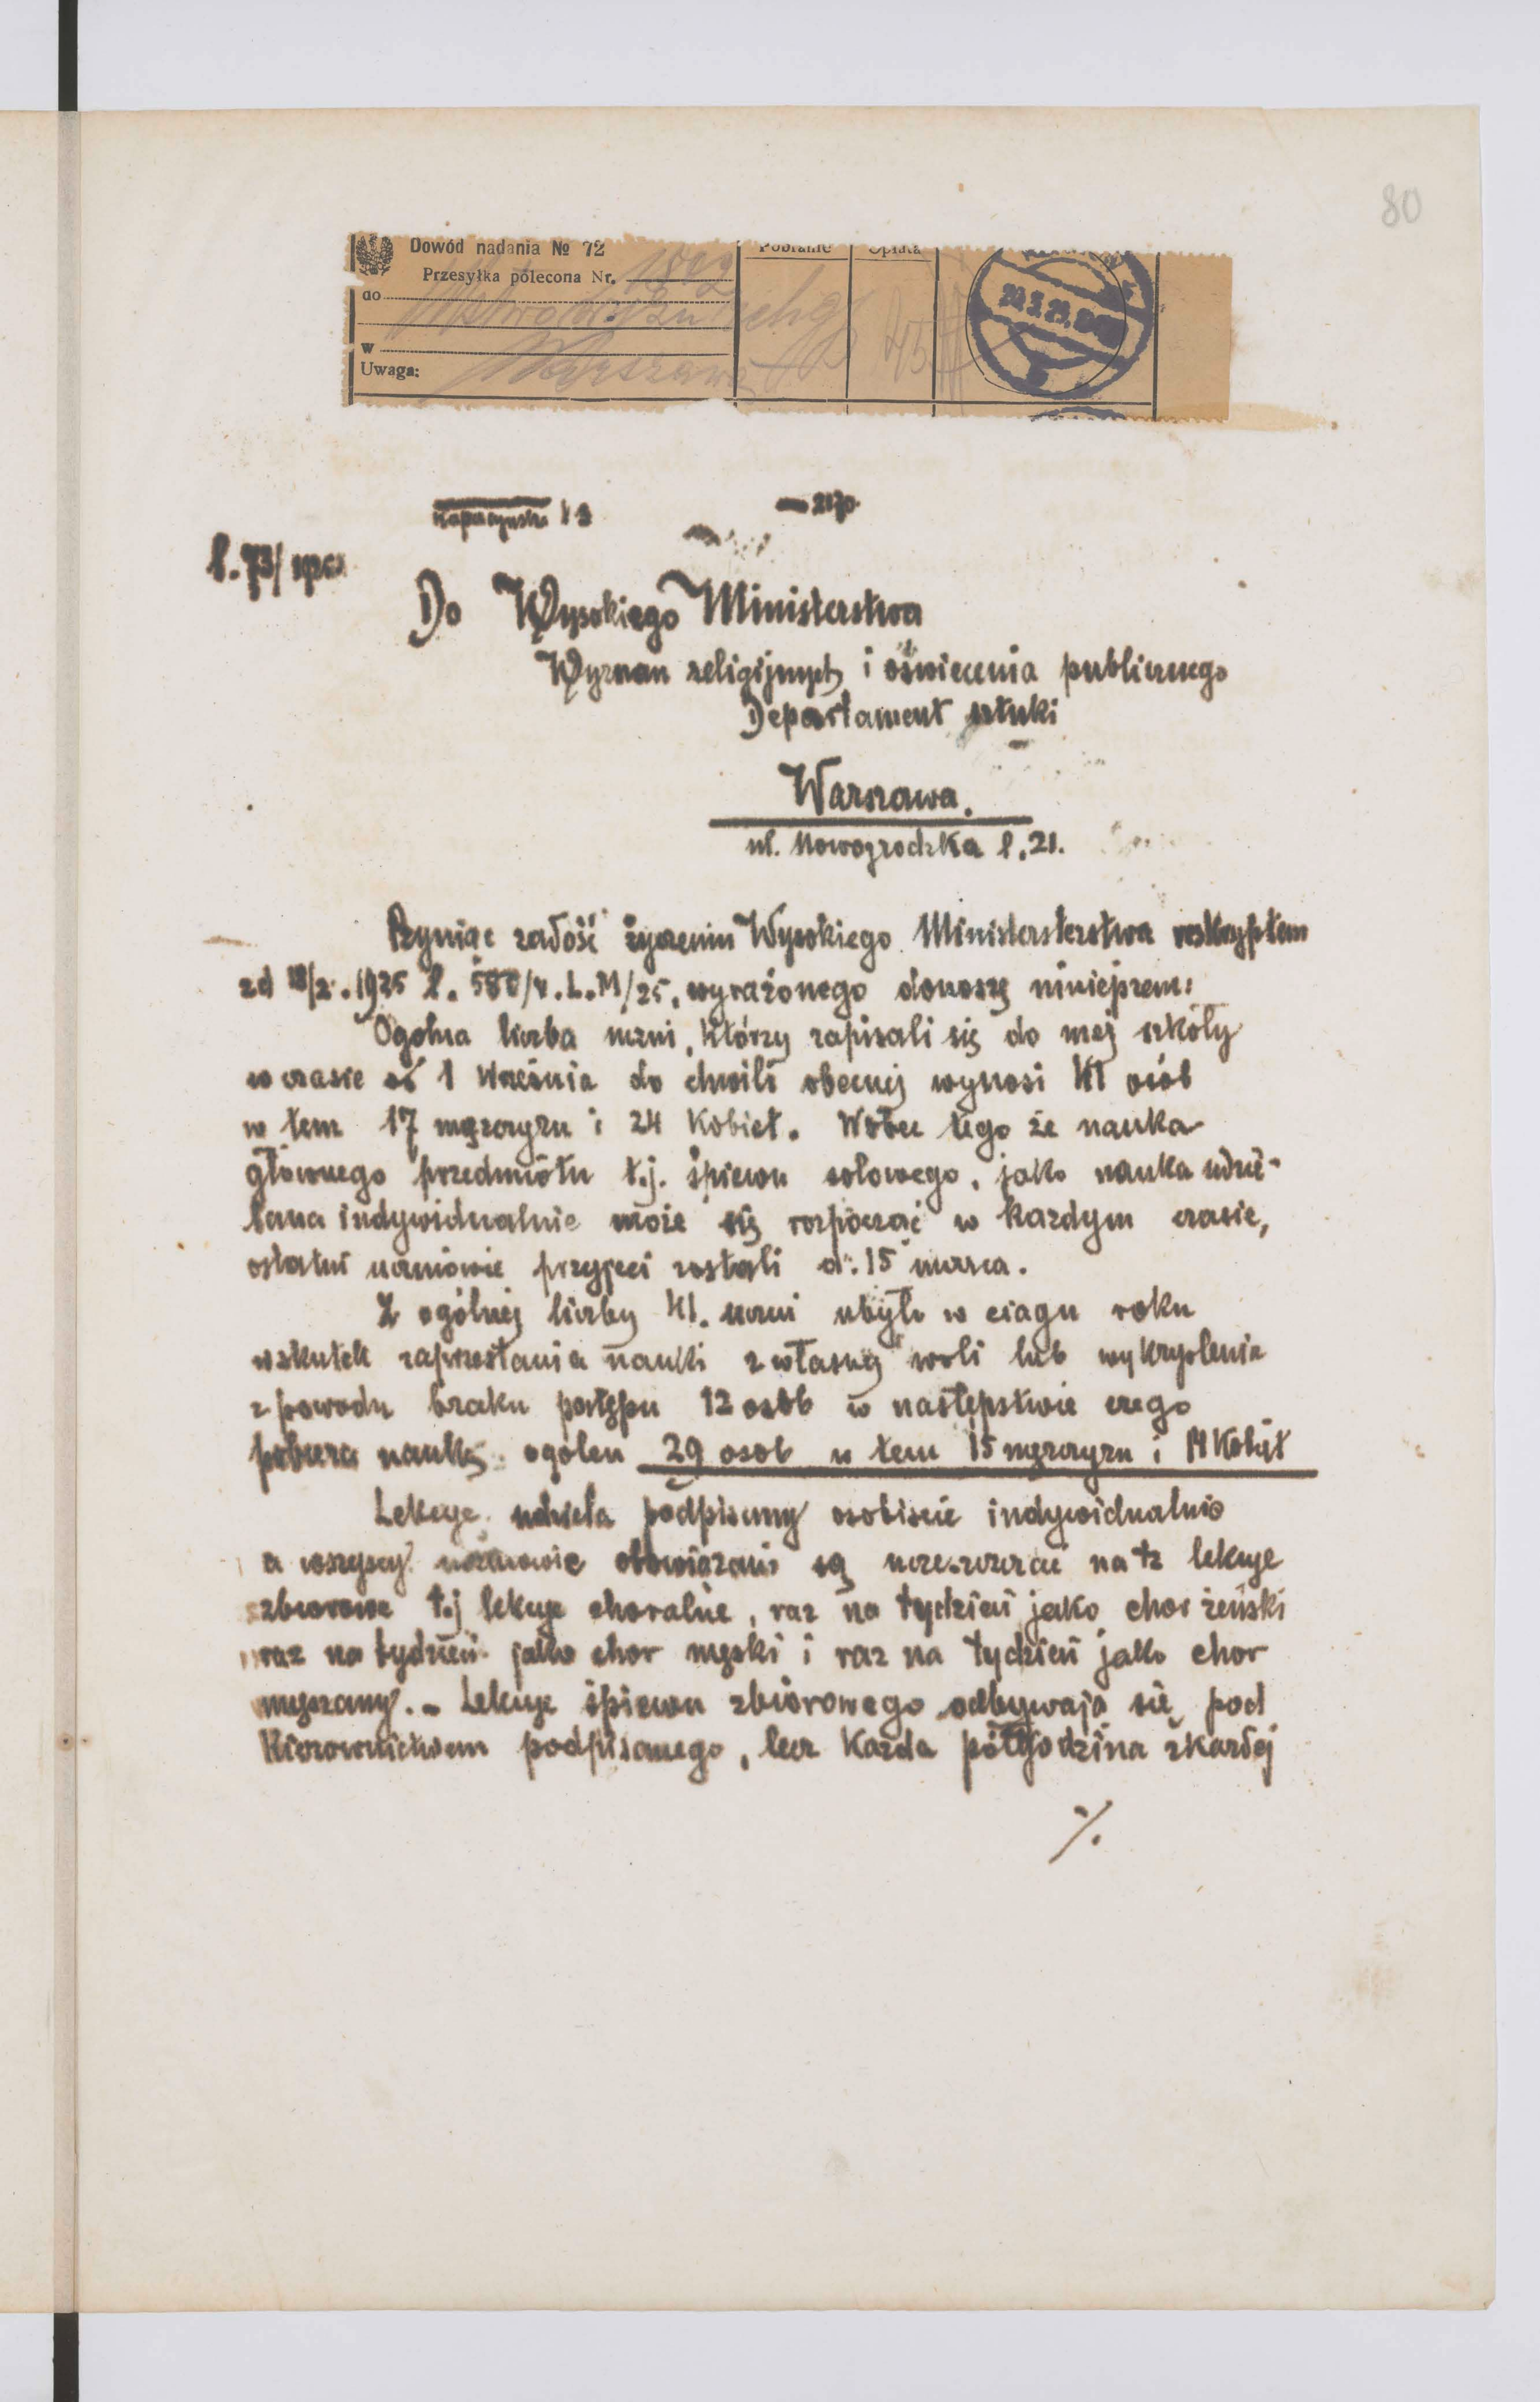 80
Dowód nadania № 72
Pobranie Opłata
Przesyłka polecona Nr.
do
w Warszawa
Uwaga:
l. 73/
Do Wysokiego Ministerstwa
Wyznan religijnych i oświecenia publicznego
Departament sztuki
Warszawa.
ul. Nowogrodzka l. 21.
Czyniąc zadość życzeniu Wysokiego Ministersterstwa reskryptem
zd 18/2. 1925 l. 580/4. L.M/25, wyrażonego donoszę niniejszem:
Ogolna liczba uczni, którzy zapisali się do mej szkoły
w czasie od 1 Września do chwili obecnej wynosi 41 osób
w tem 17 męzczyzn i 24 Kobiet. Wobec tego że nauka
głównego przedmiotu t.j. śpiewu solowego, jako nauka udzie-
lana indywidualnie może się rozpocząć w kazdym czasie,
ostatni uczniowie przyjeci zostali d. 15 marca.
Z ogólnej liczby 41. uczni ubyło w ciagu roku
wskutek zaprzestania nauki z własnej woli lub wykryslenia
z powodu braku postępu 12 osób w następstwie czego
pobiera naukę ogołem 29 osob w tem 15 męzczyzn i 14 Kobiet
Lekcye udziela podpisany osobiscie indywidualnie
a wszyscy uczniowie obowiązani są uczeszczac na tz lekcye
zbiorowe t.j lekcye choralne, raz na tydzień jako chor żeński
raz na tydzień jako chor męski i raz na tydzień jako chor
myszany. - Lekcye śpiewu zbiorowego odbywają się pod
Kierownictwem podpisanego, lecz Kazda półgodzina zkazdej
%.